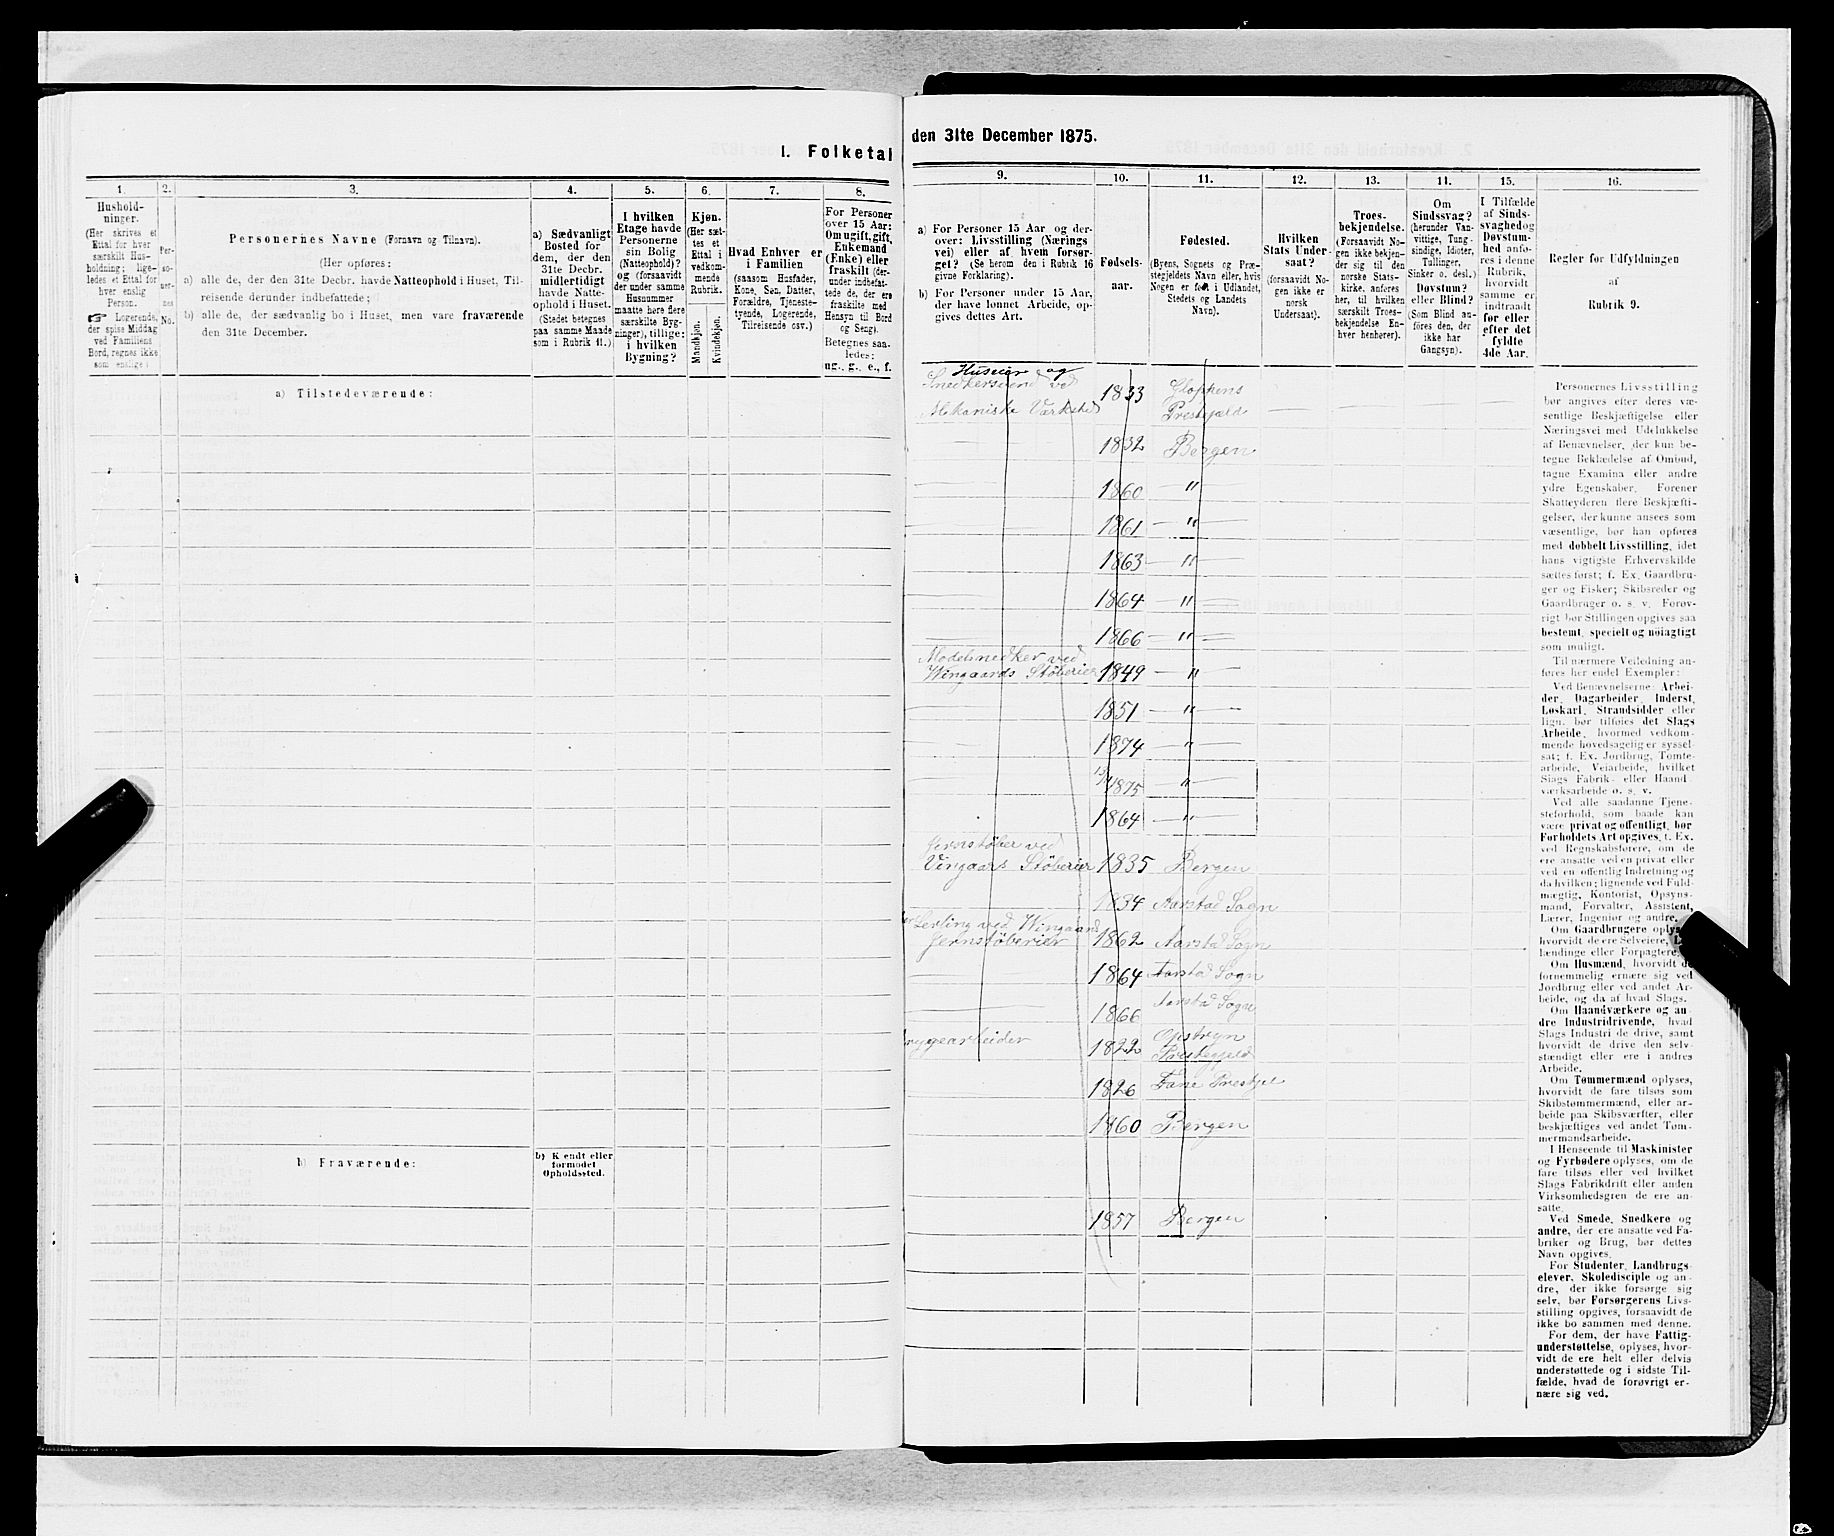 I. Folketal
den 31te December 1875.
1.
2.
3.
4.
5.
6.
7.
8.
Hushold-
ninger.
(Her skrives et
Ettal for hver
særskilt Hus-
holdning; lige-
ledes et Ettal for
hver enslig
Person.
☞ Logerende,
der spise Middag
ved Familiens
Bord, regnes ikke
som enslige.)
Per-
so-
ner-
nes
No.
Personernes Navne (Fornavn og Tilnavn).
(Her opføres:
a) alle de, der den 31te Decbr. havde Natteophold i Huset, Til-
reisende derunder indbefattede;
b) alle de, der sædvanlig bo i Huset, men vare fraværende
den 31te December.
a) Sædvanligt
Bosted for
dem, der den
31te Decbr.
midlertidigt
havde Natte-
ophold i Huset.
(Stedet betegnes
paa samme Maade
som i Rubrik 11.)
I hvilken
Etage havde
Personerne
sin Bolig
(Natteophold)?
og (forsaavidt
der under samme
Husnummer
maatte høre flere
særskilte Byg-
ninger), tillige:
i hvilken
Bygning?
Kjøn.
(Her sæt-
tes et
Ettal i
vedkom-
mende
Rubrik.
Mandkjøn.
Kvindekjøn.
Hvad Enhver er
i Familien
(saasom Husfader,
Kone, Søn, Datter,
Forældre, Tjeneste-
tyende, Logerende,
Tilreisende osv.)
For Personer
over 15 Aar:
Om ugift, gift,
Enkemand
(Enke) eller
fraskilt (der-
under indbefat-
tede de, der ere
fraskilte med
Hensyn til Bord
og Seng).
Betegnes saa-
ledes:
ug., g., e., f.
a) Tilstedeværende:
b) Fraværende:
b) Kjendt eller
formodet
Opholdssted.
9.
10.
11.
12.
13.
14.
15.
16.
a) For Personer 15 Aar og der-
over: Livsstilling (Nærings
vei) eller af hvem forsør-
get? (Se herom den i Rubrik 16
givne Forklaring).
b) For Personer under 15 Aar,
der have lønnet Arbeide, op-
gives dettes Art.
Fødsels-
aar.
Fødested.
(Byens, Sognets og Præ-
stegjeldets Navn eller, hvis
Nogen er født i Udlandet,
Stedets og Landets
Navn).
Hvilken
Stats Under-
saat?
(forsaavidt No-
gen ikke er
norsk
Undersaat).
Troes-
bekjendelse.
(Forsaavidt No-
gen ikke bekjen-
der sig til den
norske Stats-
kirke, anføres
her, til hvilken
særskilt Troes-
bekjendelse En-
hver henhører).
Om
Sindssvag?
(herunder Van-
vittige, Tung-
sindige, Idioter,
Tullinger,
Sinker o. desl.)
Døvstum?
eller Blind?
(Som Blind an-
føres den, der
ikke har
Gangsyn).
I Tilfælde
af Sinds-
svaghed og
Døvstum-
hed anfø-
res i denne
Rubrik,
hvorvidt
samme er
indtraadt
før eller
efter det
fyldte
4de Aar.
Regler for Udfyldningen
af
Rubrik 9.
Huseier og
Snedkersvend ved
Mekaniske Værksted 1833 Gloppens
Prestegjeld — — — —
1832 Bergen
1860 — " —
1861 — " —
1863 — " —
1864 — " —
1866 — " —
Modelsnedker ved
Wingaards Støberier 1849 — " —
1851 — " —
1874 — " —
1875 — " —
1864 — " —
Jernstøber ved
Vingaars Støberier 1835 Bergen
1834 Aarstad Sogn
Lerling ved Wingaards
Jernstøberier 1862 Aarstad Sogn
1864 Aarstad Sogn
1866 Aarstad Sogn
Bryggearbeider 1822 Opstryn
Prestegjeld
1826 Fane Prestgjel
1860 Bergen
1857 Bergen
Personernes Livsstilling
bør angives efter deres væ-
sentlige Beskjæftigelse eller
Næringsvei med Udelukkelse
af Benævnelser, der kun be-
tegne Beklædelse af Ombud,
tagne Examina eller andre
ydre Egenskaber. Forener
Skatteyderen flere Beskjæfti-
gelser, der kunne ansees som
væsentlige, bør han opføres
med dobbelt Livsstilling, idet
hans vigtigste Erhvervskilde
sættes først; f. Ex. Gaardbru-
ger og Fisker; Skibsreder og
Gaardbruger o. s. v. Forøv-
rigt bør Stillingen opgives saa
bestemt, specielt og nøiagtigt
som muligt.
Til nærmere Veiledning an-
føres her endel Exempler:
Ved Benævnelserne Arbei-
der, Dagarbeider, Inderst,
Løskarl, Strandsidder eller
lign. bør tilføies det Slags
Arbeide, hvormed vedkom-
mende hovedsagelig er syssel-
sat; f. Ex. Jordbrug, Tomte-
arbeide, Veiarbeide, hvilket
Slags Fabrik- eller Haand-
værksarbeide o. s. v.
Ved alle saadanne Tjene-
steforhold, som baade kan
være privat og offentligt, bør
Forholdets Art opgives, t. Ex.
ved Regnskabsførere, om de
ere ansatte ved en privat eller
ved en offentlig Indretning og
da hvilken; lignende ved Fuld-
mægtig, Kontorist, Opsyns-
mand, Forvalter, Assistent,
Lærer, Ingeniør og andre.
Om Gaardbrugere oplyses,
hvorvidt de ere Selveiere,
lændinge eller Forpagtere.
Om Husmænd, hvorvidt de
fornemmelig ernære sig ved
Jordbrug eller ved andet Ar-
beide, og da af hvad Slags.
Om Haandværkere og an-
dre Industridrivende, hvad
Slags Industri de drive, samt
hvorvidt de drive den selv-
stændigt eller ere i andres
Arbeide.
Om Tømmermænd oplyses,
hvorvidt de fare tilsøs som
Skibstømmermænd, eller ar-
beide paa Skibsværfter, eller
beskjæftiges ved andet Tøm-
mermandsarbeide.
I Henseende til Maskinister
og Fyrbødere oplyses, om de
fare tilsøs eller ved hvilket
Slags Fabrikdrift eller anden
Virksomhedsgren de ere an-
satte.
Ved Smede, Snedkere og
andre, der ere ansatte ved Fa-
briker og Brug, bør dettes
Navn opgives.
For Studenter, Landbrugs-
elever, Skoledisciple og an-
dre, der ikke forsørge sig
selv, bør Forsørgerens Livs-
stilling opgives, forsaavidt de
ikke bo sammen med denne.
For dem, der have Fattig-
understøttelse, oplyses, hvor-
vidt de ere helt eller delvis
understøttede og i sidste Til-
fælde, hvad de forøvrigt er-
nære sig ved.